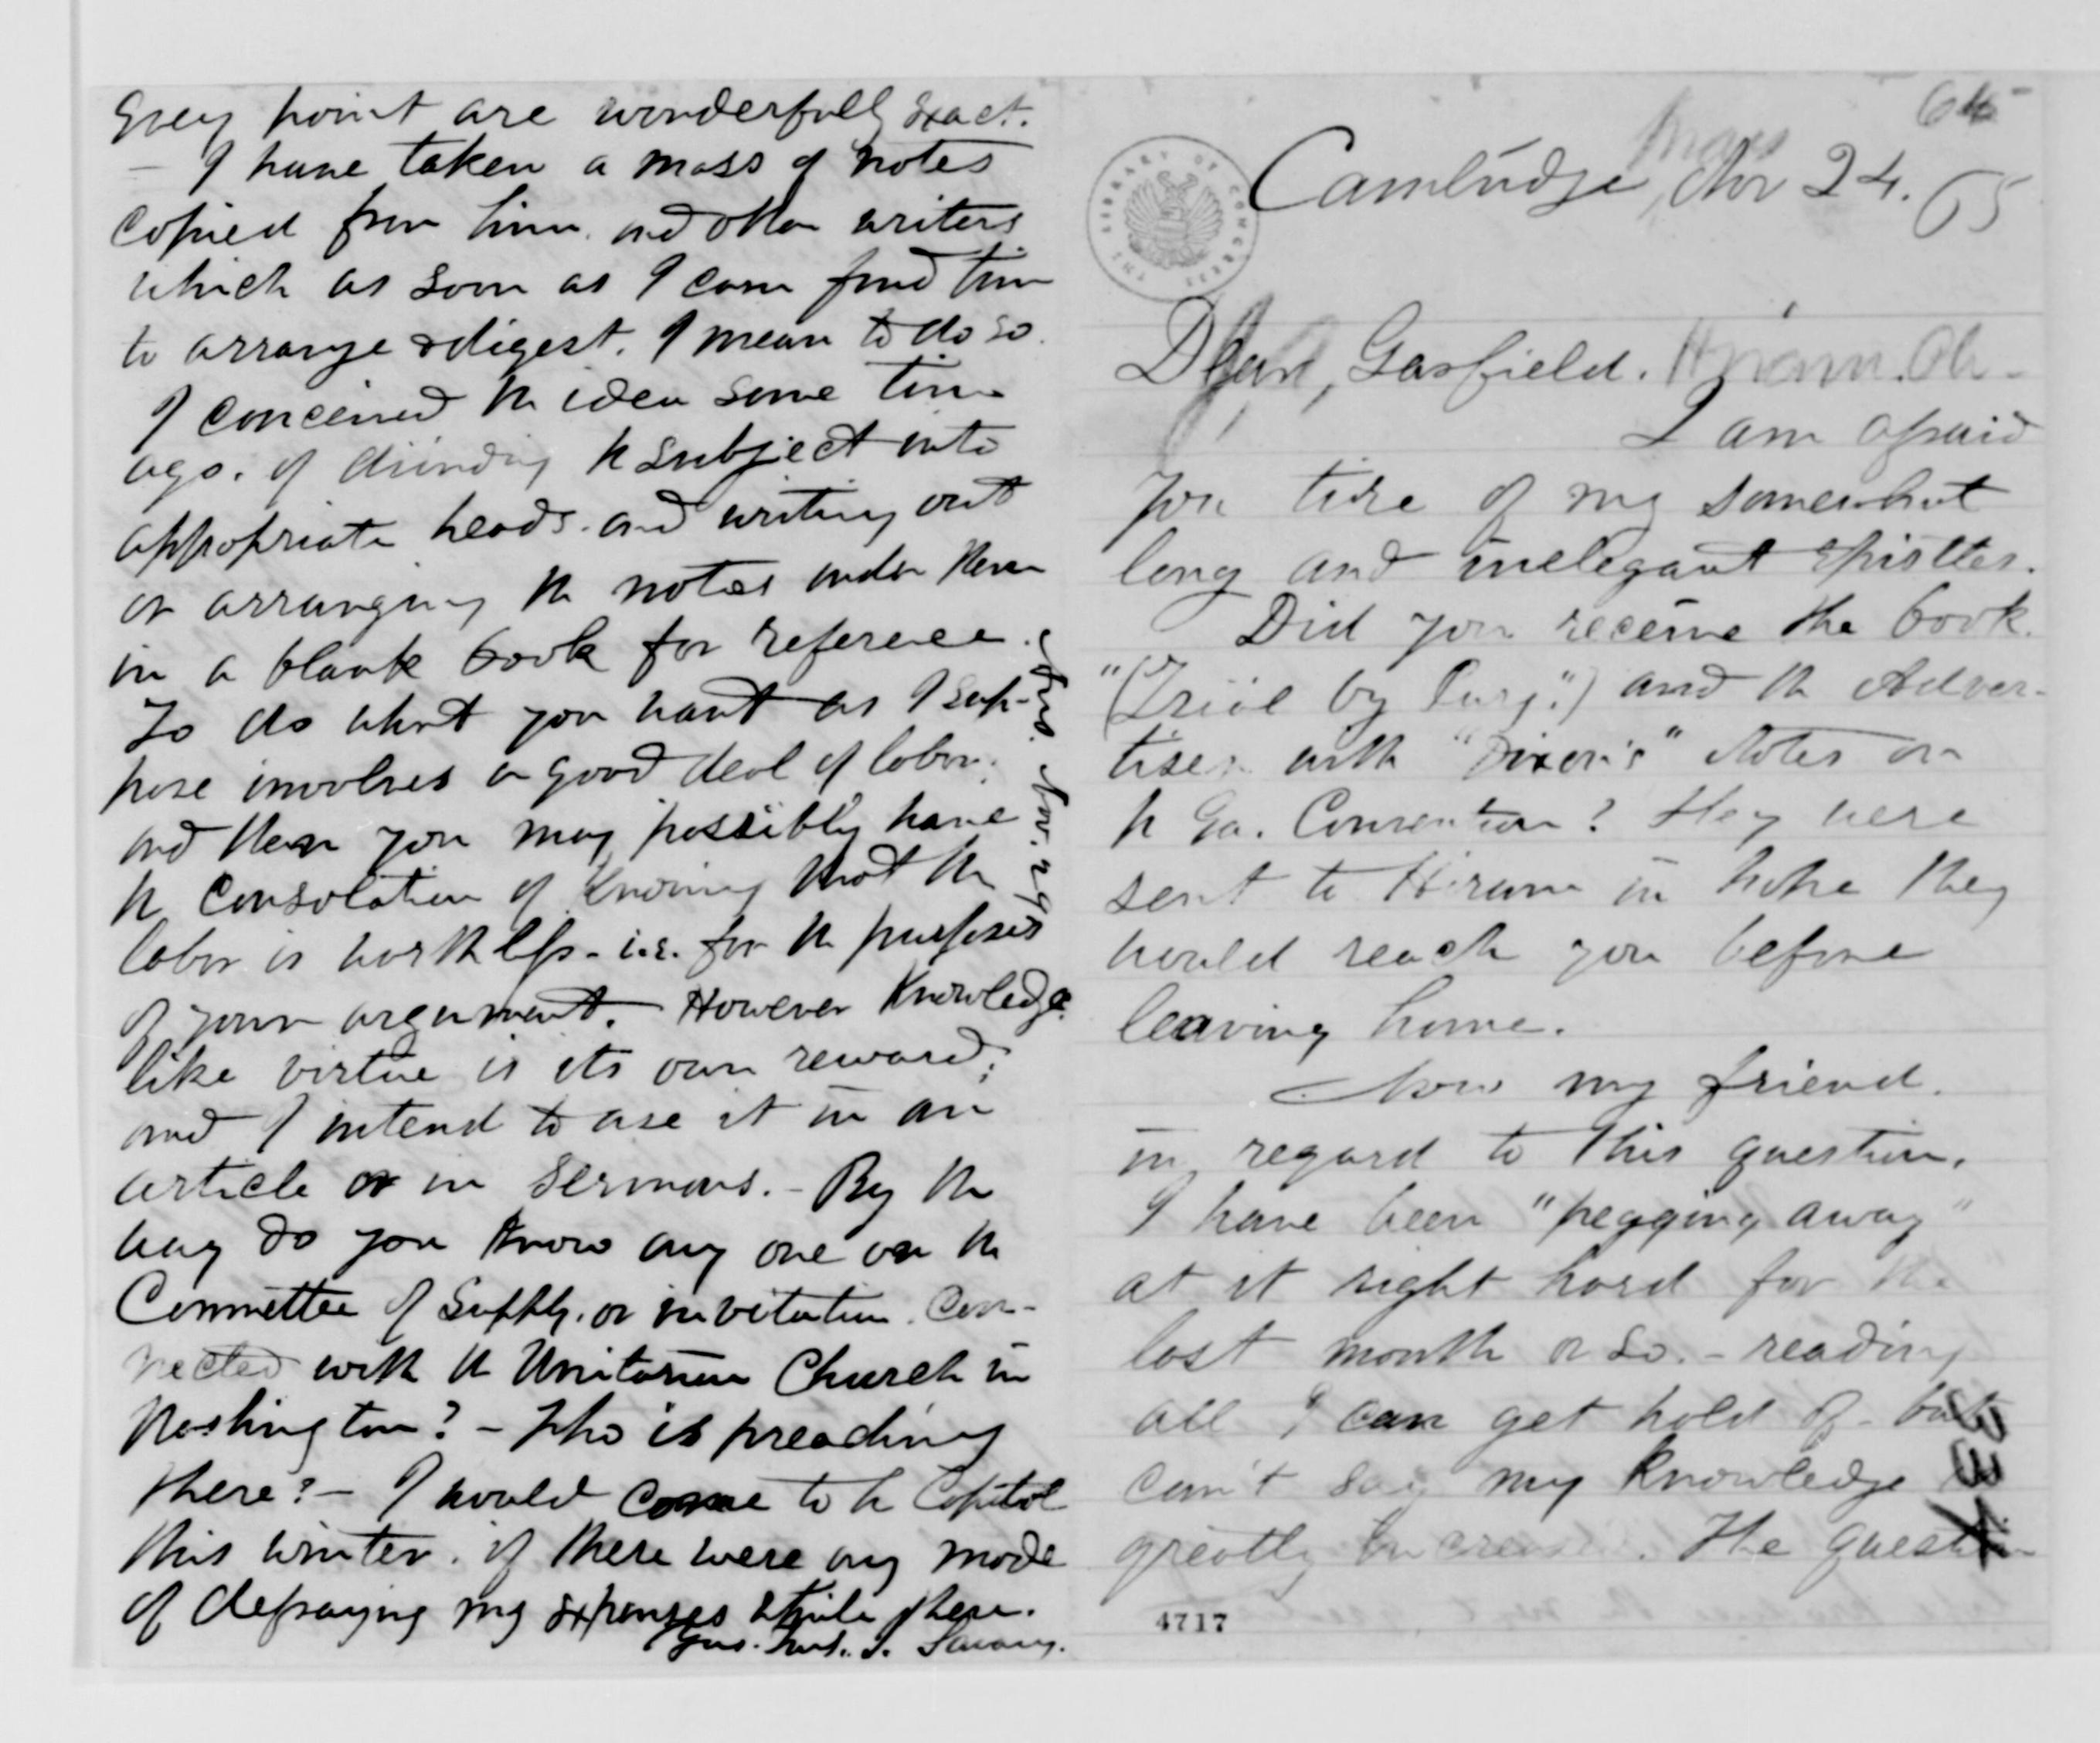 every point are wonderfully exact.
– I have taken a mass of notes
copied from him. and other writers
which as soon as I can find time
to arrange & digest. I mean to do so.
I conceived the idea some time
ago. of dividing the subject into
appropriate heads. and writing out
or arranging the notes under them
in a blank book for reference.
To do what you want as I sup-
pose involves a good deal of labor;
and then you may possibly have
the consolation of knowing that the
labor is worthless – i.e. for the purposes
of your argument. – However Knowledge
like virtue is its own reward;
and I intend to use it in an
article or in sermons. – By the
way do you know any one on the
Committee of Supply. or invitation. con-
nected with the Unitarian Church in
Washington? – Who is preaching
there? – I would come to the Capitol
this winter. if there were any mode
of defraying my expenses while there.
Nov. 24
64
Cambridge, Mass Nov 24. 65
THE LIBRARY OF CONGRESS
Dear, Garfield. Hiram. Oh –
I am afraid
you tire of my somewhat
long and inelegant epistles.
Did you receive the book.
"(Trial by Jury.") and the Adver-
tiser with "Dixon's" Notes on
the Ga. Convention? They were
sent to Hiram in hope they
would reach you before
leaving home.
Now my friend.
in regard to this question.
I have been "pegging away"
at it right hard for the
last month or so. – reading
all I can get hold of – but
can't say my knowledge
greatly increased. The question
334
4717